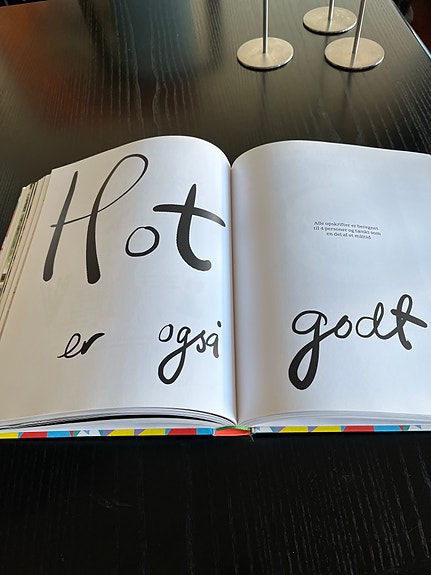 Hot
er også godt
Alle opskrifter er beregnet
til 4 personer og tænkt som
en del af et måltid